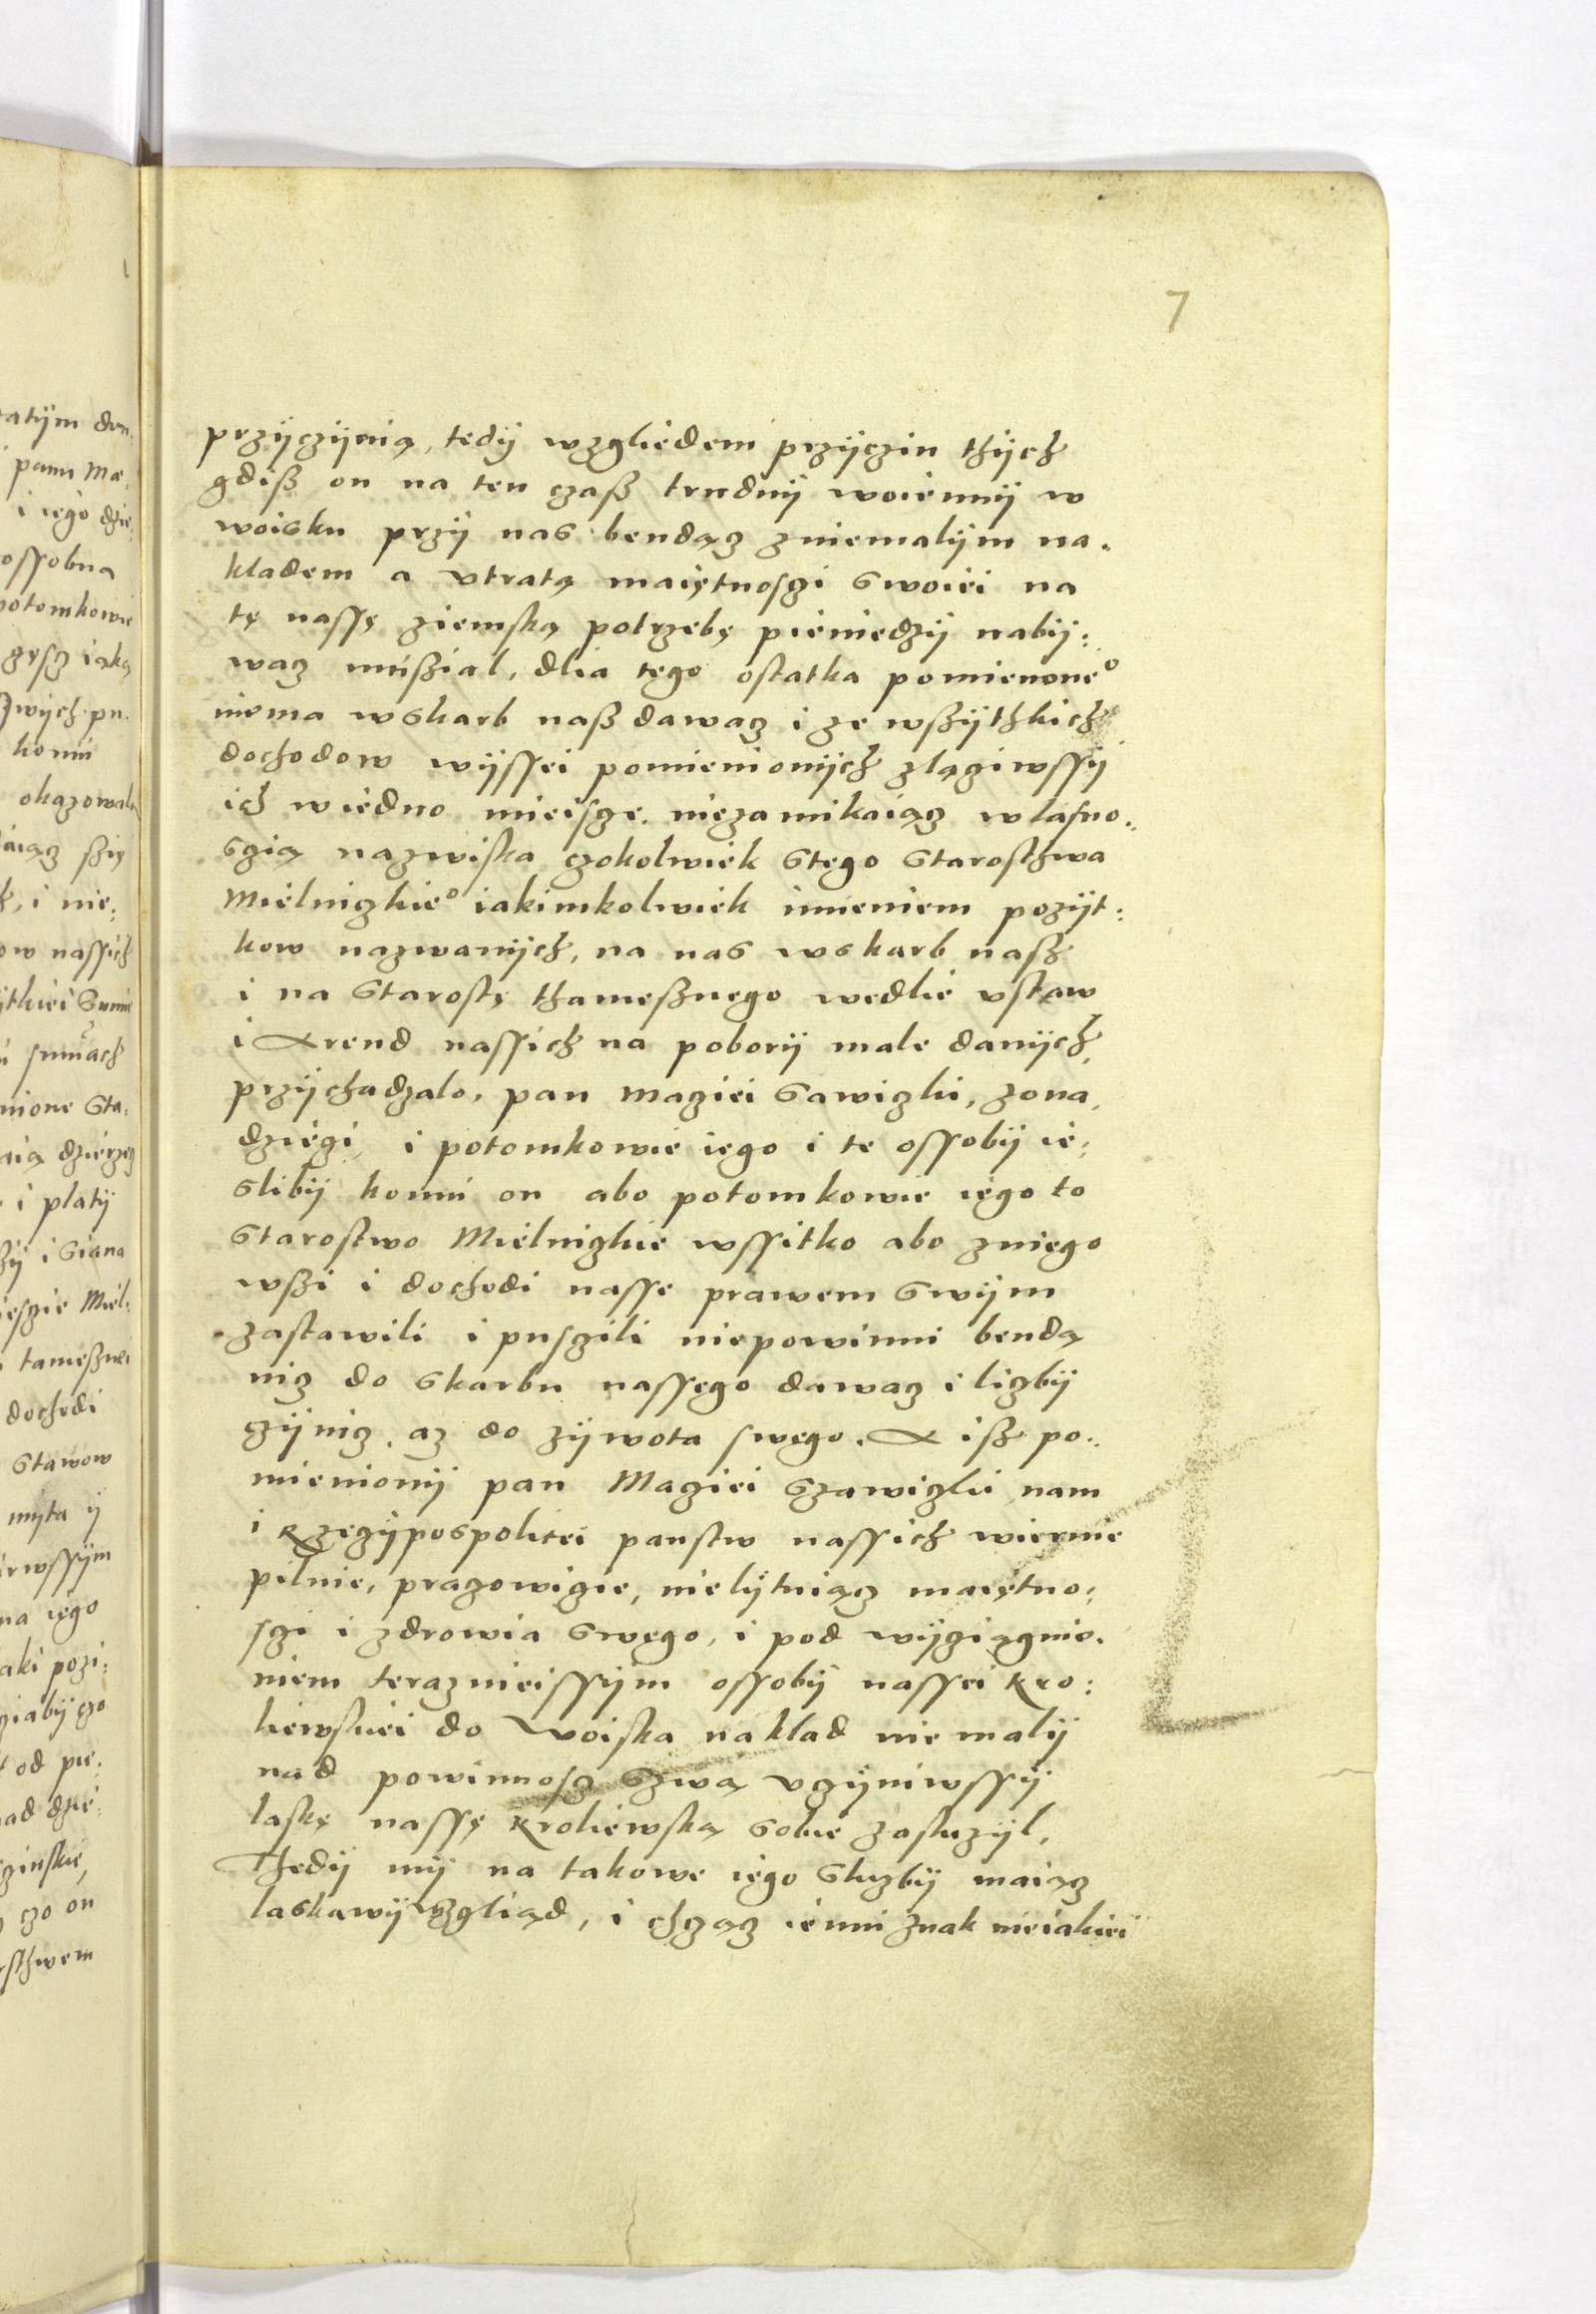 7
przÿczÿnią, tedÿ wzgliedem przÿczin thÿch
gdiß on na ten czaß trudnÿ woiennÿ w
woisku przÿ nas bendącz zniemalÿm na-
kladem a vtratą maiętnosczi swoiei na
tę nassę ziemską potrzebę pieniedzÿ nabÿ:
wacz mußial, dlia tego ostatka pomienoneº
niema wskarb naß dawacz i ze wßÿthkich
dochodow wÿssei pomienionÿch złącziwssÿ
ich wiedno mieiscze. niezamikaiącz wlasno-
sczią nazwiska czokolwiek stego starosthwa
Mielniczkieº iakimkolwiek imieniem pozÿt:
kow nazwanÿch, na nas wskarb nasz
i na starostę thameßnego wedlie vstaw
i Arend nassich na poborÿ male danÿch,
przÿchadzalo, pan Maciei sawiczki, zona,
dzieczi, i potomkowie iego i te ossobÿ ie:
slibÿ komu on abo potomkowie iego to
starostwo Mielniczkie wssitko abo zniego
wßi i dochodi nasse prawem swÿm
zastawili i pusczili niepowinni bendą
nicz do skarbu nassego dawacz i liczbÿ
czÿnicz, az do zÿwota swego. A isz po-
mienionÿ pan Maciei szawiczki nam
i Rzeczÿpospolitei panstw nassich wiernie
pilnie, praczowicie, nielÿtuiącz maiętno:
sczi i zdrowia swego, i pod wÿciągnie-
niem teraznieissÿm ossobÿ nassei kro:
liewskiei do woiska naklad nie malÿ
nad powinnoscz szwą vczÿniwssÿ
laskę nassę kroliewską sobie zasluzÿl,
Thedÿ mÿ na takowe iego sluzbÿ maiącz
laskawÿ wzgliąd, i chczącz iemu znak nieiakiei